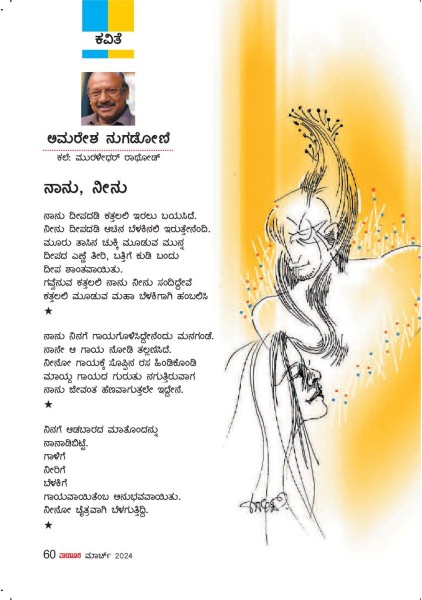 ಕವಿತೆ
ಅಮರೇಶ ನುಗಡೋಣಿ
ಕಲೆ: ಮುರಳೀಧರ್ ರಾಥೋಡ್
ನಾನು, ನೀನು
ನಾನು ದೀಪದಡಿ ಕತ್ತಲಲಿ ಇರಲು ಬಯಸಿದೆ.
ನೀನು ದೀಪದಡಿ ಆಚಿನ ಬೆಳಕಿನಲಿ ಇರುತ್ತೇನೆಂದಿ.
ಮೂರು ತಾಸಿನ ಚುಕ್ಕಿ ಮೂಡುವ ಮುನ್ನ
ದೀಪದ ಎಣ್ಣೆ ತೀರಿ, ಬತ್ತಿಗೆ ಕುಡಿ ಬಂದು
ದೀಪ ಶಾಂತವಾಯಿತು.
ಗವ್ವೆನುವ ಕತ್ತಲಲಿ ನಾನು ನೀನು ಸಂದಿದ್ದೇವೆ
ಕತ್ತಲಲಿ ಮೂಡುವ ಮಹಾ ಬೆಳಕಿಗಾಗಿ ಹಂಬಲಿಸಿ
★
ನಾನು ನಿನಗೆ ಗಾಯಗೊಳಿಸಿದ್ದೇನೆಂದು ಮನಗಂಡೆ.
ನಾನೇ ಆ ಗಾಯ ನೋಡಿ ತಲ್ಲಣಿಸಿದೆ.
ನೀನೋ ಗಾಯಕ್ಕೆ ಸೊಪ್ಪಿನ ರಸ ಹಿಂಡಿಕೊಂಡಿ
ಮಾಯ್ದ ಗಾಯದ ಗುರುತು ನಗುತ್ತಿರುವಾಗ
ನಾನು ಜೀವಂತ ಹೆಣವಾಗುತ್ತಲೇ ಇದ್ದೇನೆ.
★
ನಿನಗೆ ಆಡಬಾರದ ಮಾತೊಂದನ್ನು
ನಾನಾಡಿಬಿಟ್ಟೆ.
ಗಾಳಿಗೆ
ನೀರಿಗೆ
ಬೆಳಕಿಗೆ
ಗಾಯವಾಯಿತೆಂಬ ಅನುಭವವಾಯಿತು.
ನೀನೋ ಚೈತ್ರವಾಗಿ ಬೆಳಗುತ್ತಿದ್ದಿ.
★
60 ಮಯೂರ ಮಾರ್ಚ್ 2024